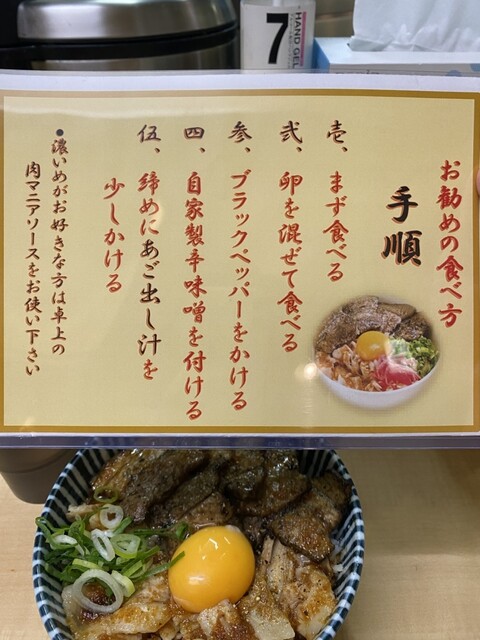 7
HAND GEL
お勧めの食べ方
手順
壱、まず食べる
弐、卵を混ぜて食べる
参、ブラックペッパーをかける
四、自家製辛味噌を付ける
伍、締めにあご出し汁を
少しかける
●濃いめがお好きな方は卓上の
肉マニアソースをお使い下さい